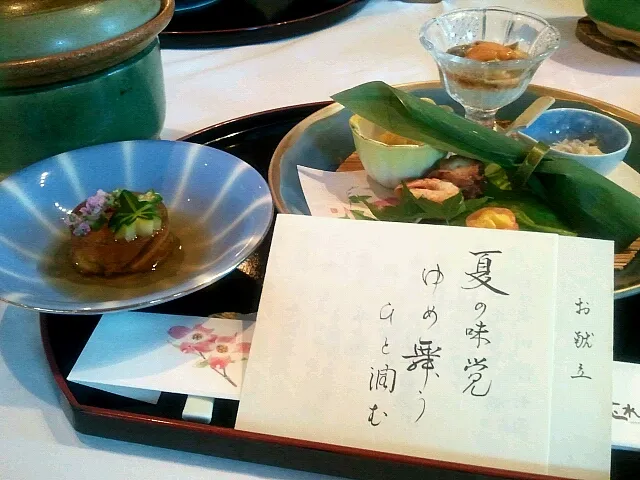 お献立
夏の味覚
ゆめ舞う
ひと凋む